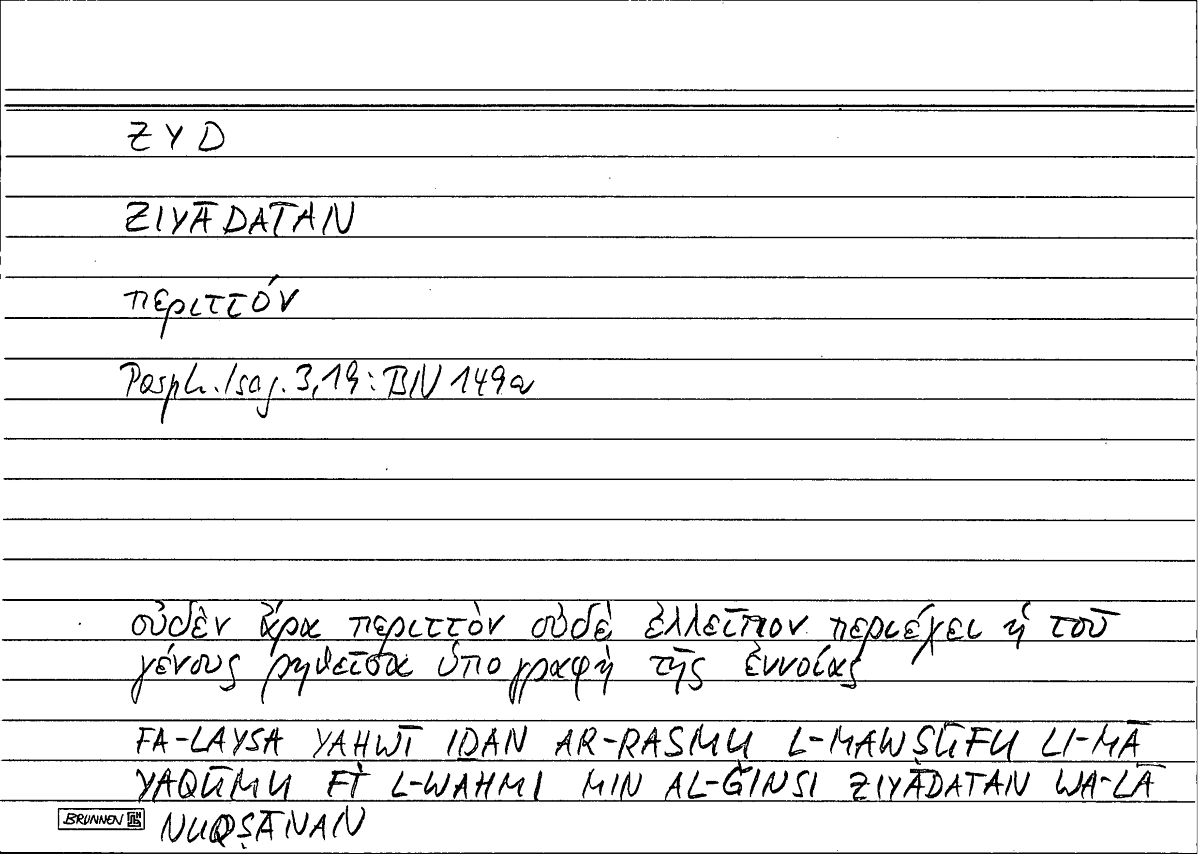 ZYD
ZIYĀDATAN
περιττόν
Porph. Isag. 3,19: BN 149a
οὐδὲν ἄρα περιττὸν οὐδὲ ἐλλεῖπον περιέχει ἡ τοῦ
γένους ῥηθεῖσα ὑπογραφὴ τῆς ἐννοίας
FA-LAYSA YAHWĪ IḎAN AR-RASMU L-MAWṢŪFU LI-MĀ
YAQŪMU FĪ L-WAHMI MIN AL-ǦINSI ZIYĀDATAN WA-LĀ
BRUNNEN NUQṢĀNAN